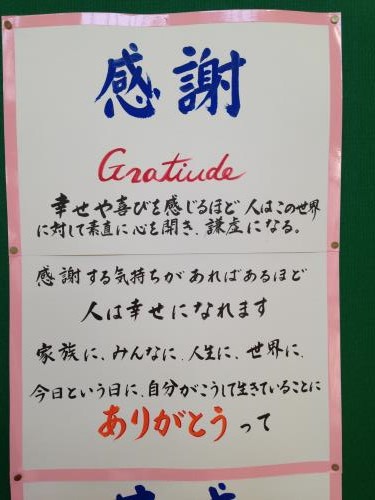 感謝
Gratiude
幸せや喜びを感じるほど人はこの世界
に対して素直に心を開き、謙虚になる。
感謝する気持ちがあればあるほど
人は幸せになれます
家族に、みんなに、人生に、世界に、
今日という日に、自分がこうして生きていることに
ありがとうって